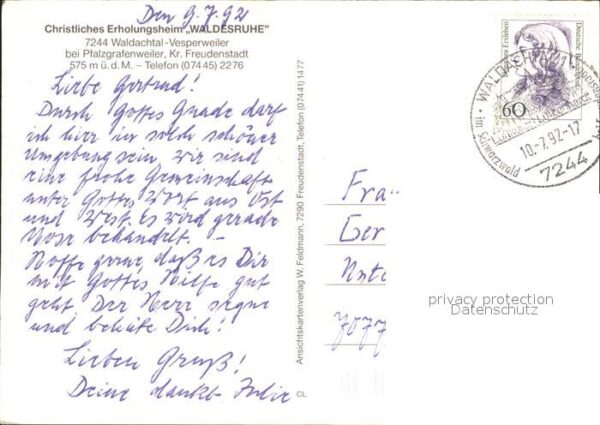 Den 9.7.92
Christliches Erholungsheim "WALDESRUHE"
7244 Waldachtal-Vesperweiler
bei Pfalzgrafenweiler, Kr. Freudenstadt
575 m ü. d. M. – Telefon (07445) 2276
Liebe Gertrud!
Durch Gottes Gnade darf
ich hier in solch schöner
Umgebung sein, wir sind
eine frohe Gemeinschaft
unter Gottes Wort aus Ost
und West. es wird gerade
Mose behandelt. –
Hoffe gerne, daß es Dir
mit Gottes Hilfe gut
geht Der Herr segne
und behüte Dich!
Lieben Gruß!
Deine dankb.
Ansichtskartenverlag W. Feldmann, 7290 Freudenstadt, Telefon (07441) 1477
CL
Deutsche Bundespost
60
WALDACHTAL
im Schwarzwald
10.-7.92-17
7244
Frau
Ger
Unte
7077
privacy protection
Datenschutz